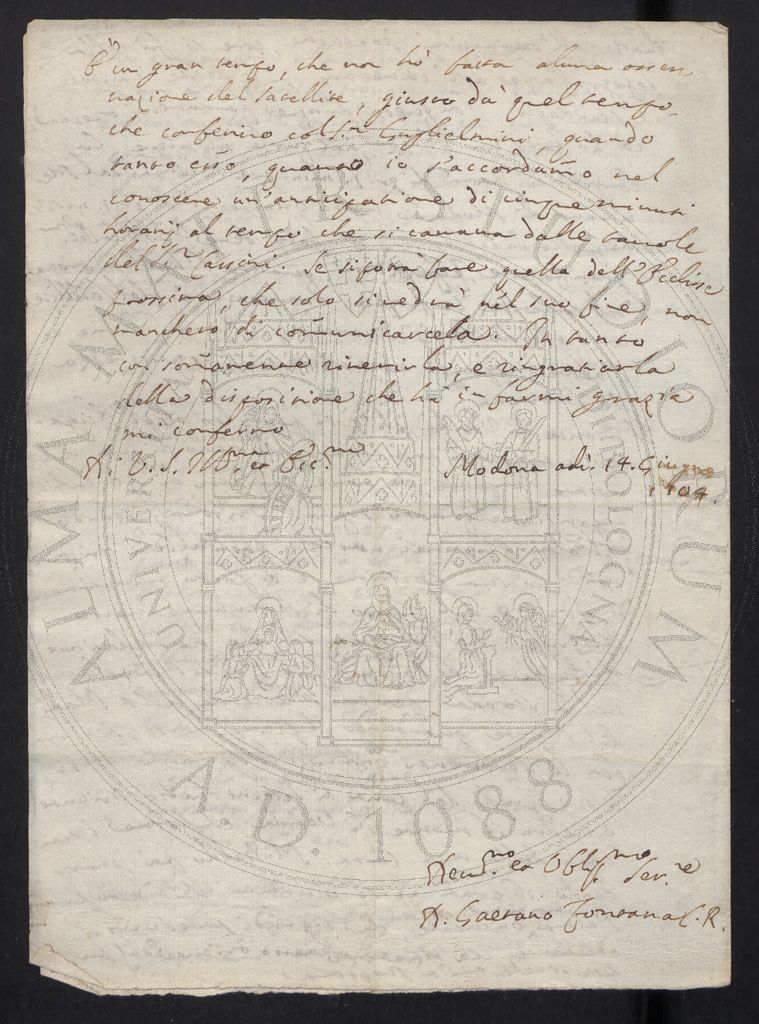 È un gran tempo, che non hò fatta alcuna osser-
vazione del Satellite, giusto dà quel tempo
che conferivo col Sr. Guglielmini, quando
tanto esso, quanto io s'accordam̃o nel
conoscere un'anticipatione di cinque minuti
horarij al tempo che si cavava dalle tavole
del Sr. Cassini. Se si potrà fare quella dell'Ecclisse
prossima, che solo si vedrà nel suo fine, non
mancherò di com̃unicarcela. In tanto
con som̃amente riverirla, e ringratiarla
della dispositione che hà in farmi grazia
mi confermo
D. V. S. Ill.ma et Ecc.ma
Modona adì: 14. Giugno
1704.
Devmo. et Obligmo Ser.re
D. Gaetano Fontana C. R.
ALMA MATER STUDIORUM
UNIVERSITÀ DI BOLOGNA
A.D. 1088